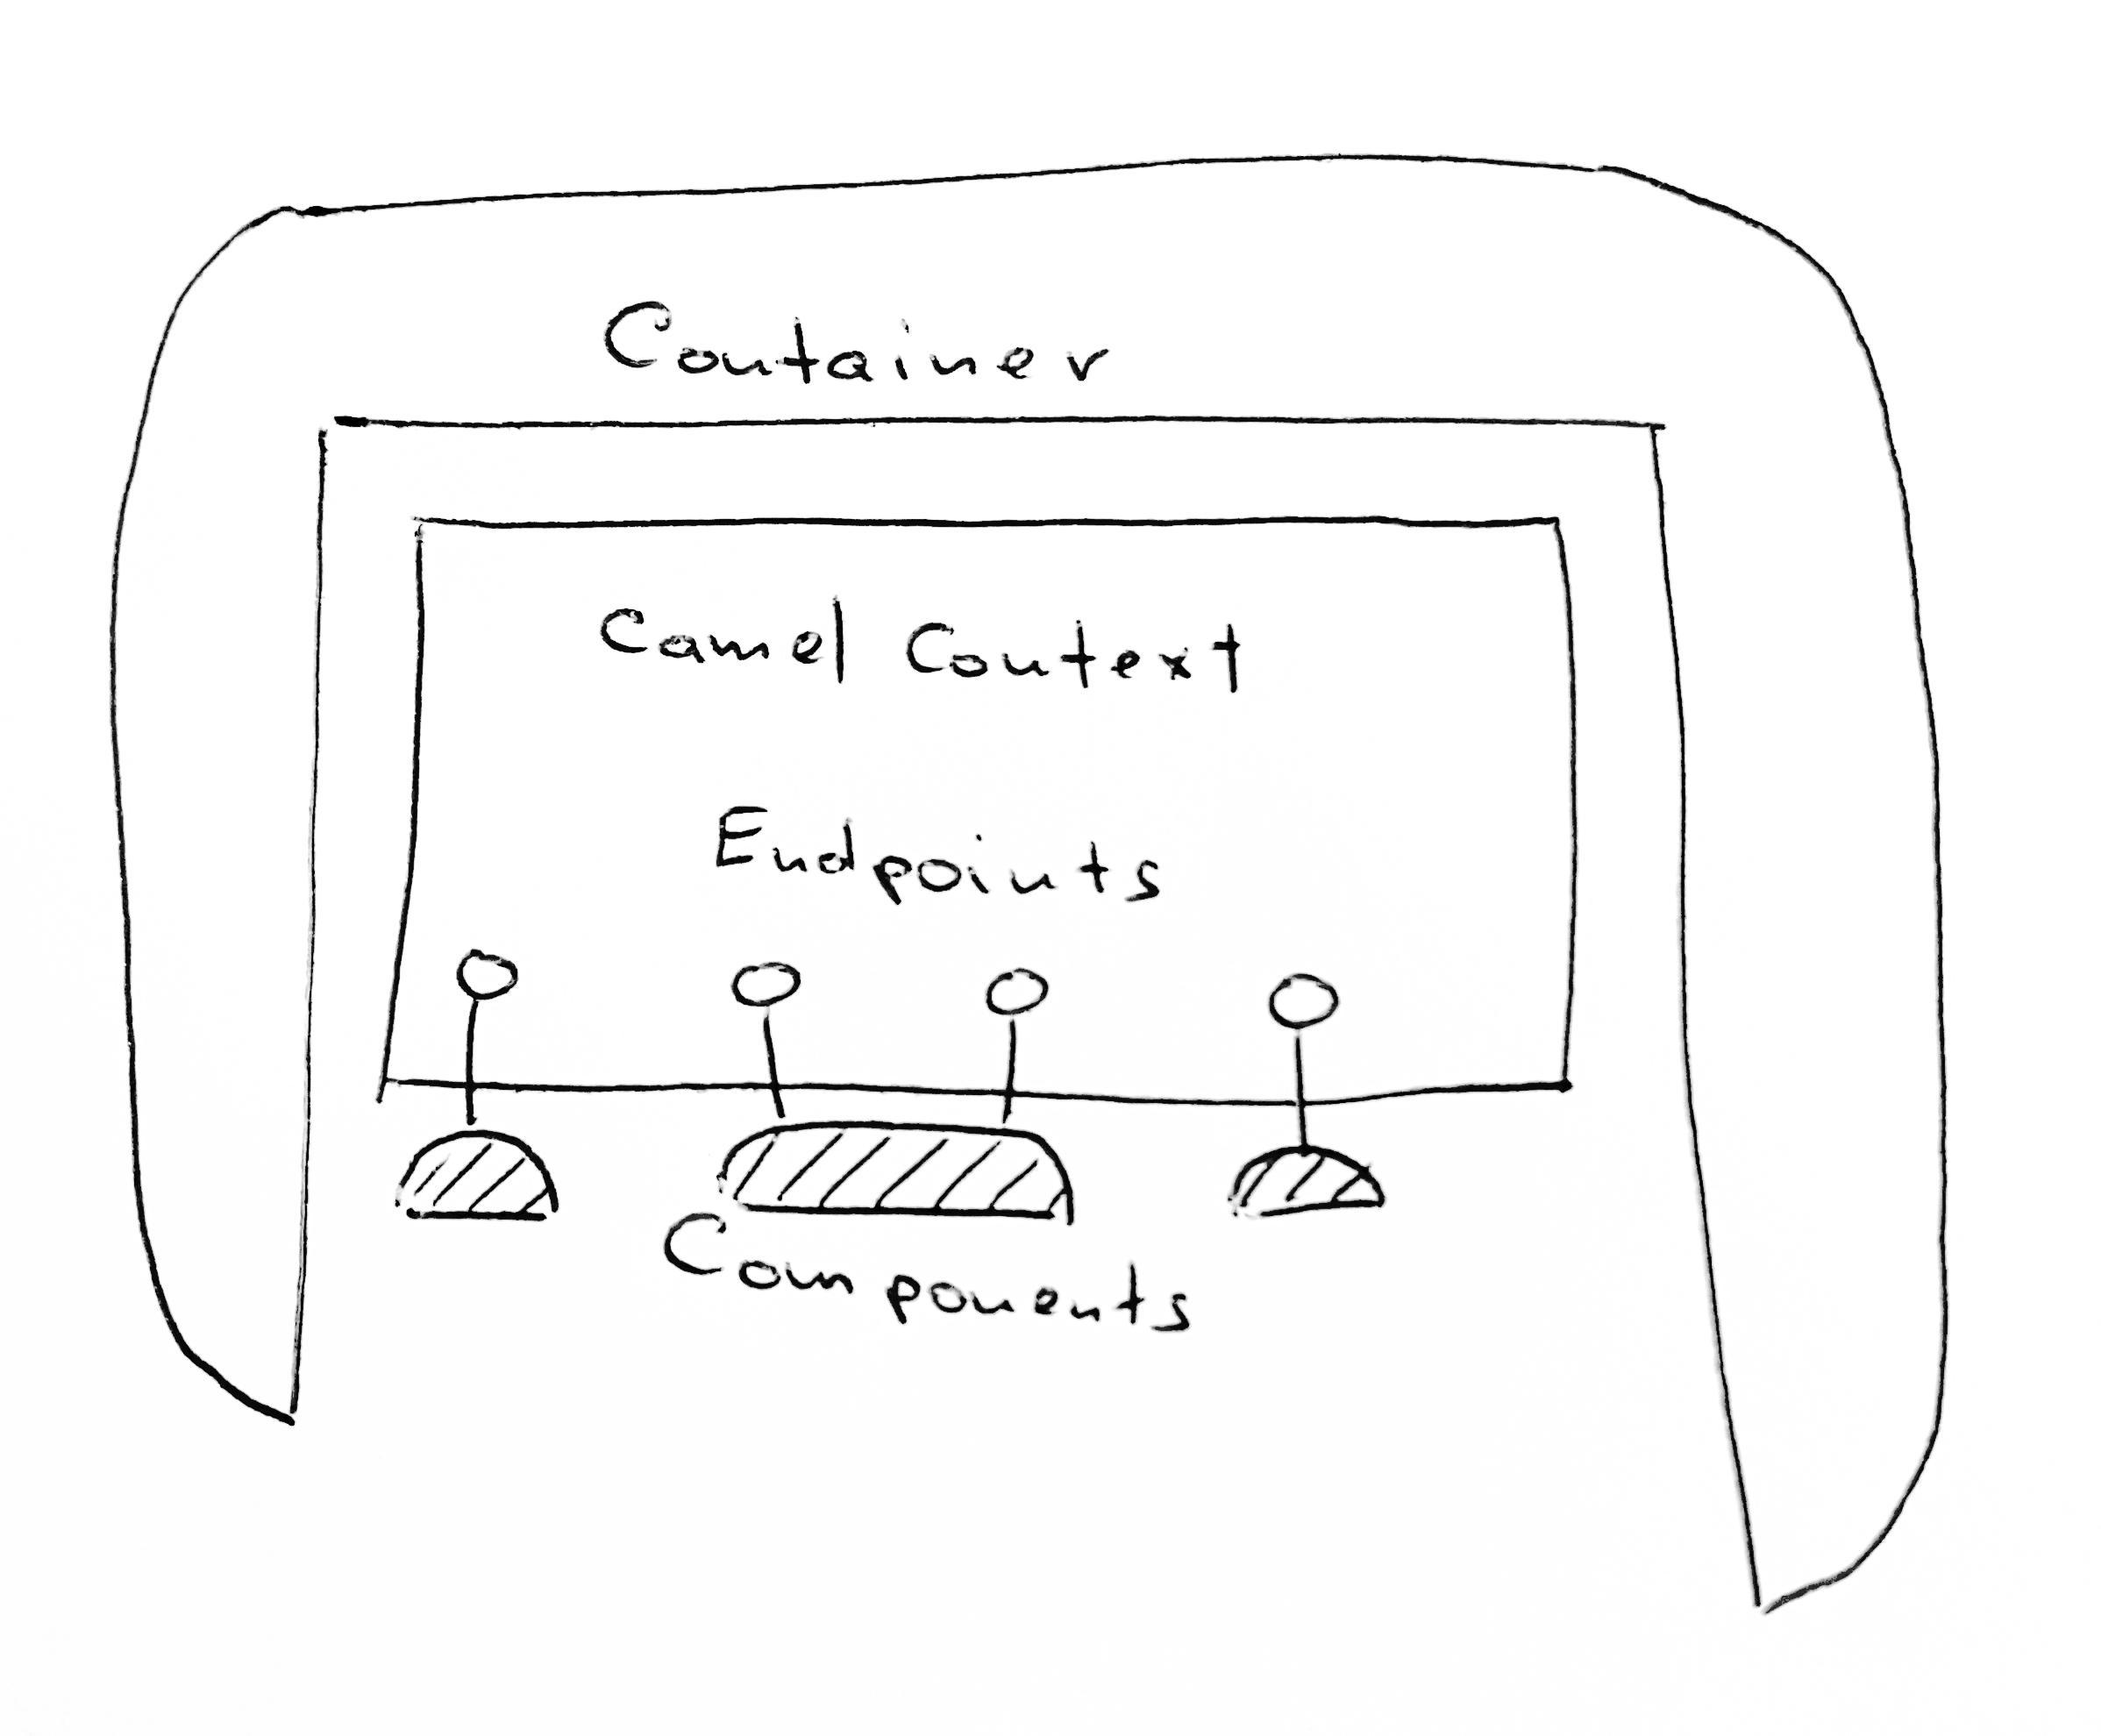 Container
Camel Context
Endpoints
Components